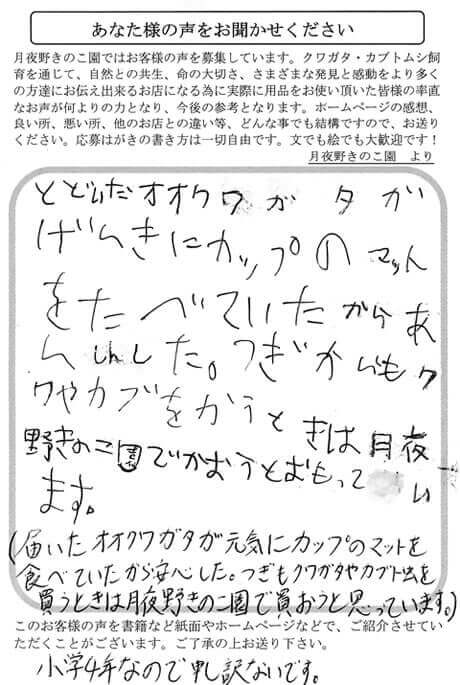 あなた様の声をお聞かせください
月夜野きのこ園ではお客様の声を募集しています。クワガタ・カブトムシ飼
育を通じて、自然との共生、命の大切さ、さまざまな発見と感動をより多く
の方達にお伝え出来るお店になる為に実際に用品をお使い頂いた皆様の率直
なお声が何よりの力となり、今後の参考となります。ホームページの感想、
良い所、悪い所、他のお店との違い等、どんな事でも結構ですので、お送り
ください。応募はがきの書き方は一切自由です。文でも絵でも大歓迎です！
月夜野きのこ園　より
とどいたオオクワガタが
げんきにカップのマット
をたべていたからあ
んしんした。つぎからもク
ワやカブをかうと
きは月夜
野きのこ園でかおうとおもってい
ます。
(届いたオオクワガタが元気にカップのマットを
食べていたから安心した。つぎもクワガタやカブト虫を
買うときは月夜野きのこ園で買おうと思っています。)
このお客様の声を書籍など紙面やホームページなどで、ご紹介させてい
ただくことがございます。ご了承の上お送り下さい。
小学4年なので申し訳ないです。